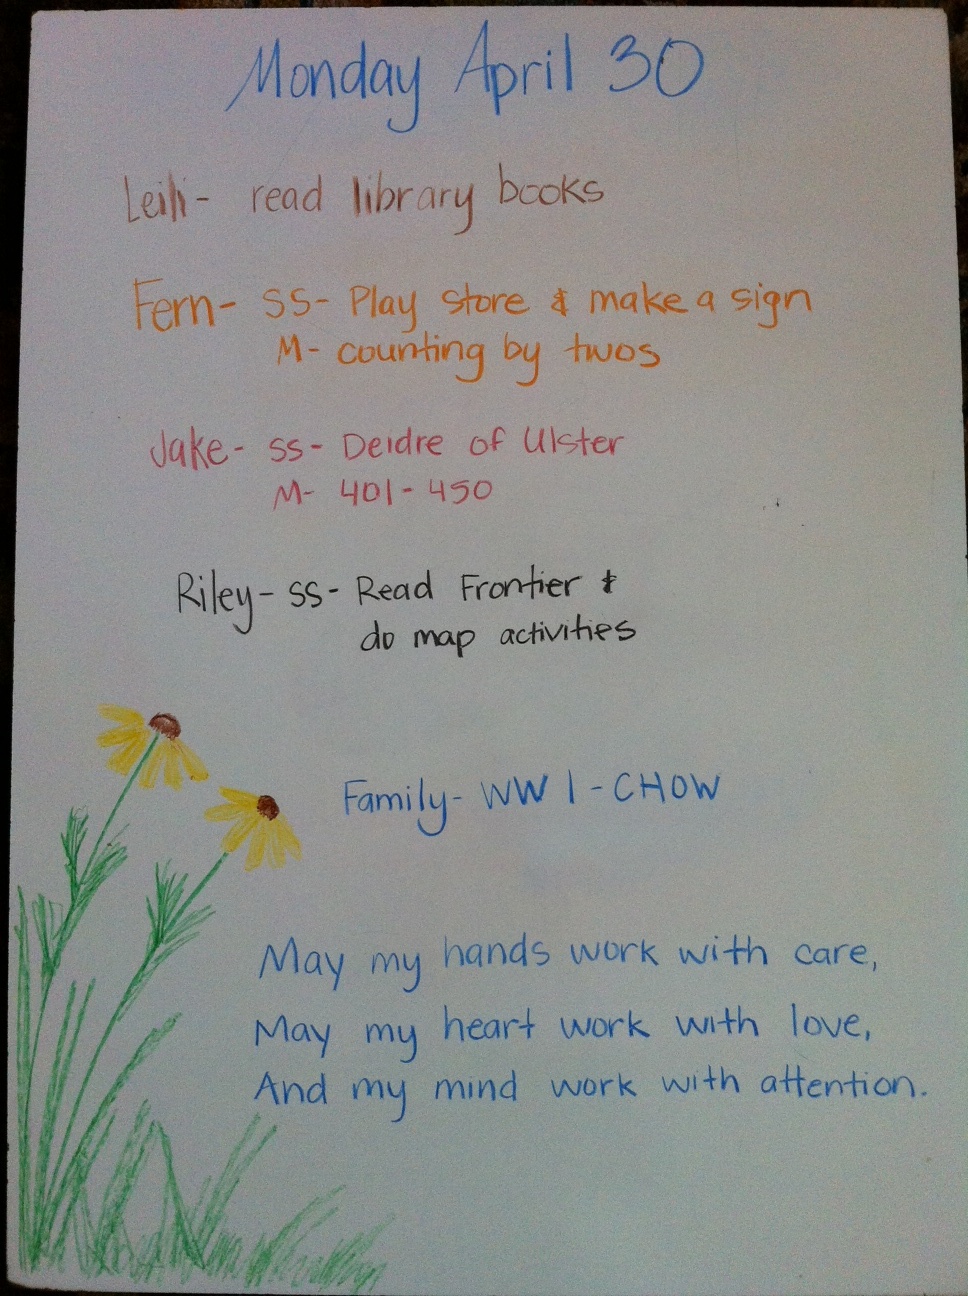 Monday April 30
Leili- read library books
Fern- SS- Play store & make a sign
M- counting by twos
Jake- SS- Deidre of Ulster
M- 401-450
Riley- SS- Read Frontier &
do map activities
Family- WW I - CHOW
May my hands work with care,
May my heart work with love,
And my mind work with attention.